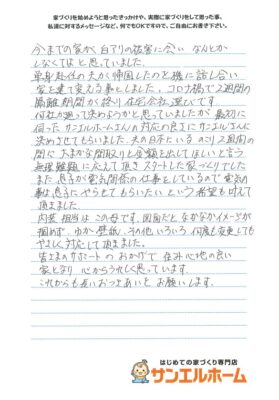 家づくりを始めようと思ったきっかけや、実際に家づくりをして思った事、
私達に対するメッセージなど、何でもOKですので、ご自由にお書き下さい。
今までの家が、白アリの被害に会い なんとか
しなくてはと思っていました。
単身赴任の夫が帰国したのと機に話し合い
家を建て変える事としました。コロナ禍で2週間の
隔離期間が終り住宅会社選びです
何社か廻って決めようかと思っていましたが最初に
伺ったサンエルホームさんの対応の良さにサンエルさんに
決めさせてもらいました。夫の日本にいるのが2カ月の
間に大まかな間取りと金額を出してほしいと言う
無理難題にこたえて頂きスタートした家づくりでした
また息子が電気関係の仕事としているので電気の
事は息子にやらせてもらいたいという希望も叶えて
頂ました。
内装担当はこの母です。図面だとなかなかイメージが
掴めず ゆか、壁紙、その他いろいろ 何度も変更しても
やさしく対応して頂ました。
皆さまのサポートのおかげで 住み心地の良い
家となり 心からうれしく思っています。
これからも長いおつきあいを お願いします。
はじめての家づくり専門店
サンエルホーム